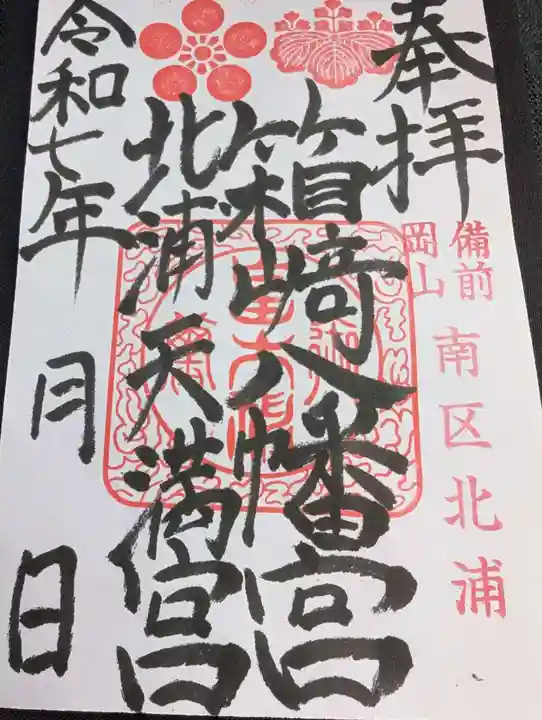 奉拝
備前
岡山
南区北浦
箱崎八幡宮
北浦天満宮
令和七年
月
日